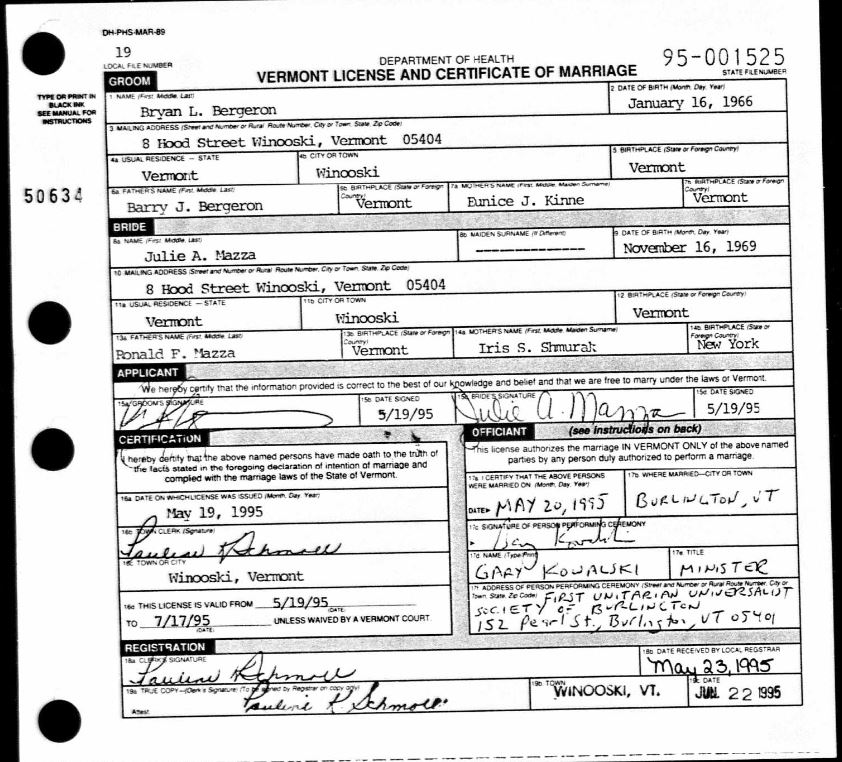 DH-PHS-MAR-89
19
LOCAL FILE NUMBER
DEPARTMENT OF HEALTH
VERMONT LICENSE AND CERTIFICATE OF MARRIAGE
95-001525
STATE FILE NUMBER
TYPE OR PRINT IN
BLACK INK
SEE MANUAL FOR
INSTRUCTIONS
50634
GROOM
1 NAME (First, Middle, Last)
Bryan L. Bergeron
2 DATE OF BIRTH (Month, Day, Year)
January 16, 1966
3 MAILING ADDRESS (Street and Number or Rural Route Number, City or Town, State, Zip Code)
8 Hood Street Winooski, Vermont 05404
4a USUAL RESIDENCE – STATE
Vermont
4b CITY OR TOWN
Winooski
5 BIRTHPLACE (State or Foreign Country)
Vermont
6a FATHER'S NAME (First, Middle, Last)
Barry J. Bergeron
6b BIRTHPLACE (State or Foreign Country)
Vermont
7a MOTHER'S NAME (First, Middle, Maiden Surname)
Eunice J. Kinne
7b BIRTHPLACE (State or Foreign Country)
Vermont
BRIDE
8a NAME (First, Middle, Last)
Julie A. Mazza
8b MAIDEN SURNAME (If Different)
--------------
9 DATE OF BIRTH (Month, Day, Year)
November 16, 1969
10 MAILING ADDRESS (Street and Number or Rural Route Number, City or Town, State, Zip Code)
8 Hood Street Winooski, Vermont 05404
11a USUAL RESIDENCE – STATE
Vermont
11b CITY OR TOWN
Winooski
12 BIRTHPLACE (State or Foreign Country)
Vermont
13a FATHER'S NAME (First, Middle, Last)
Ronald F. Mazza
13b BIRTHPLACE (State or Foreign Country)
Vermont
14a MOTHER'S NAME (First, Middle, Maiden Surname)
Iris S. Shmurak
14b BIRTHPLACE (State or Foreign Country)
New York
APPLICANT
We hereby certify that the information provided is correct to the best of our knowledge and belief and that we are free to marry under the laws of Vermont.
15a GROOM'S SIGNATURE
15b DATE SIGNED
5/19/95
15c BRIDE'S SIGNATURE
Julie A. Mazza
15d DATE SIGNED
5/19/95
CERTIFICATION
I hereby certify that the above named persons have made oath to the truth of
the facts stated in the foregoing declaration of intention of marriage and
complied with the marriage laws of the State of Vermont.
16a DATE ON WHICH LICENSE WAS ISSUED (Month, Day, Year)
May 19, 1995
16b TOWN CLERK (Signature)
Pauline R Schmoll
16c TOWN OR CITY
Winooski, Vermont
16d THIS LICENSE IS VALID FROM 5/19/95
(DATE)
TO 7/17/95 UNLESS WAIVED BY A VERMONT COURT.
(DATE)
OFFICIANT (see instructions on back)
This license authorizes the marriage IN VERMONT ONLY of the above named
parties by any person duly authorized to perform a marriage.
17a I CERTIFY THAT THE ABOVE PERSONS
WERE MARRIED ON (Month, Day, Year)
DATE▸ MAY 20, 1995
17b WHERE MARRIED—CITY OR TOWN
BURLINGTON, VT
17c SIGNATURE OF PERSON PERFORMING CEREMONY
▸ Gary Kowalski
17d NAME (Type/Print)
GARY KOWALSKI
17e TITLE
MINISTER
17f ADDRESS OF PERSON PERFORMING CEREMONY (Street and Number or Rural Route Number, City or
Town, State, Zip Code) FIRST UNITARIAN UNIVERSALIST
SOCIETY OF BURLINGTON
152 Pearl St., Burlington, VT 05401
REGISTRATION
18a CLERK'S SIGNATURE
Pauline R Schmoll
18b DATE RECEIVED BY LOCAL REGISTRAR
May 23, 1995
19a TRUE COPY—(Clerk's Signature) (To be signed by Registrar on copy only)
Attest: Pauline R Schmoll
19b TOWN
WINOOSKI, VT.
19c DATE
JUN 22 1995